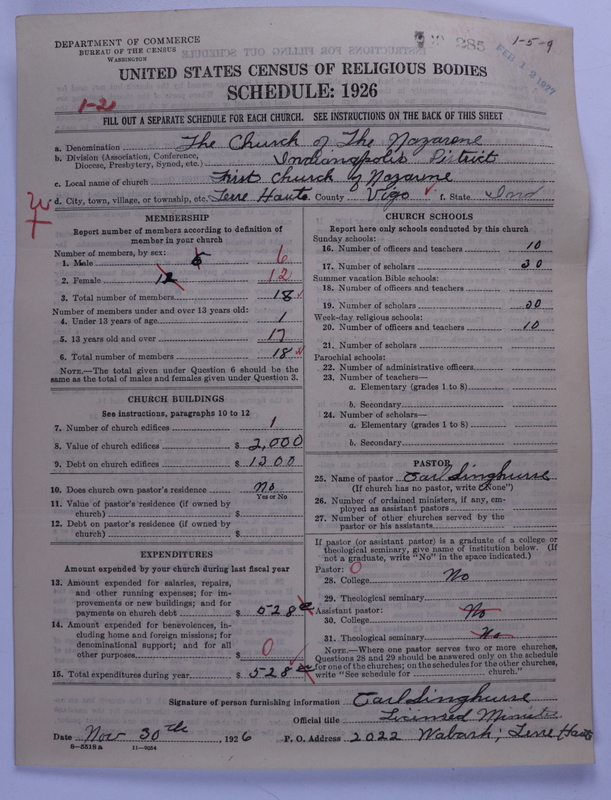 DEPARTMENT OF COMMERCE
BUREAU OF THE CENSUS
WASHINGTON
285
1-5-9
FEB 12 1927
UNITED STATES CENSUS OF RELIGIOUS BODIES
SCHEDULE: 1926
1-21
FILL OUT A SEPARATE SCHEDULE FOR EACH CHURCH. SEE INSTRUCTIONS ON THE BACK OF THIS SHEET
a. Denomination The Church of The Nazarene
b. Division (Association, Conference, Diocese, Presbytery, Synod, etc.) Indianapolis District
c. Local name of church First Church of Nazarene
d. City, town, village, or township, etc. Terre Haute County Vigo f. State Ind
MEMBERSHIP
Report number of members according to definition of
member in your church
Number of members, by sex:
1. Male 6 6
2. Female 12 12
3. Total number of members 18
Number of members under and over 13 years old:
4. Under 13 years of age 1
5. 13 years old and over 17
6. Total number of members 18
NOTE.—The total given under Question 6 should be the
same as the total of males and females given under Question 3.
CHURCH BUILDINGS
See instructions, paragraphs 10 to 12
7. Number of church edifices 1
8. Value of church edifices $ 2,000
9. Debt on church edifices $ 1300
10. Does church own pastor's residence No
Yes or No
11. Value of pastor's residence (if owned by
church) $
12. Debt on pastor's residence (if owned by
church) $
EXPENDITURES
Amount expended by your church during last fiscal year
13. Amount expended for salaries, repairs,
and other running expenses; for im-
provements or new buildings; and for
payments on church debt $ 528
14. Amount expended for benevolences, in-
cluding home and foreign missions; for
denominational support; and for all
other purposes $ 0
15. Total expenditures during year $ 528
CHURCH SCHOOLS
Report here only schools conducted by this church
Sunday schools:
16. Number of officers and teachers 10
17. Number of scholars 30
Summer vacation Bible schools:
18. Number of officers and teachers
19. Number of scholars 30
Week-day religious schools:
20. Number of officers and teachers 10
21. Number of scholars
Parochial schools:
22. Number of administrative officers
23. Number of teachers—
a. Elementary (grades 1 to 8)
b. Secondary
24. Number of scholars—
a. Elementary (grades 1 to 8)
b. Secondary
PASTOR
25. Name of pastor Carl Linghurse
(If church has no pastor, write "None")
26. Number of ordained ministers, if any, em-
ployed as assistant pastors
27. Number of other churches served by the
pastor or his assistants
If pastor (or assistant pastor) is a graduate of a college or
theological seminary, give name of institution below. (If
not a graduate, write "No" in the space indicated.)
Pastor: 0
28. College No
29. Theological seminary
Assistant pastor: No
30. College
31. Theological seminary No
NOTE.—Where one pastor serves two or more churches,
Questions 28 and 29 should be answered only on the schedule
for one of the churches; on the schedules for the other churches,
write "See schedule for church."
Signature of person furnishing information Carl Linghurse
Official title Licensed Minister
Date Nov 30th, 1926 P. O. Address 2022 Wabash; Terre Haute
8-5518 a 11-9054